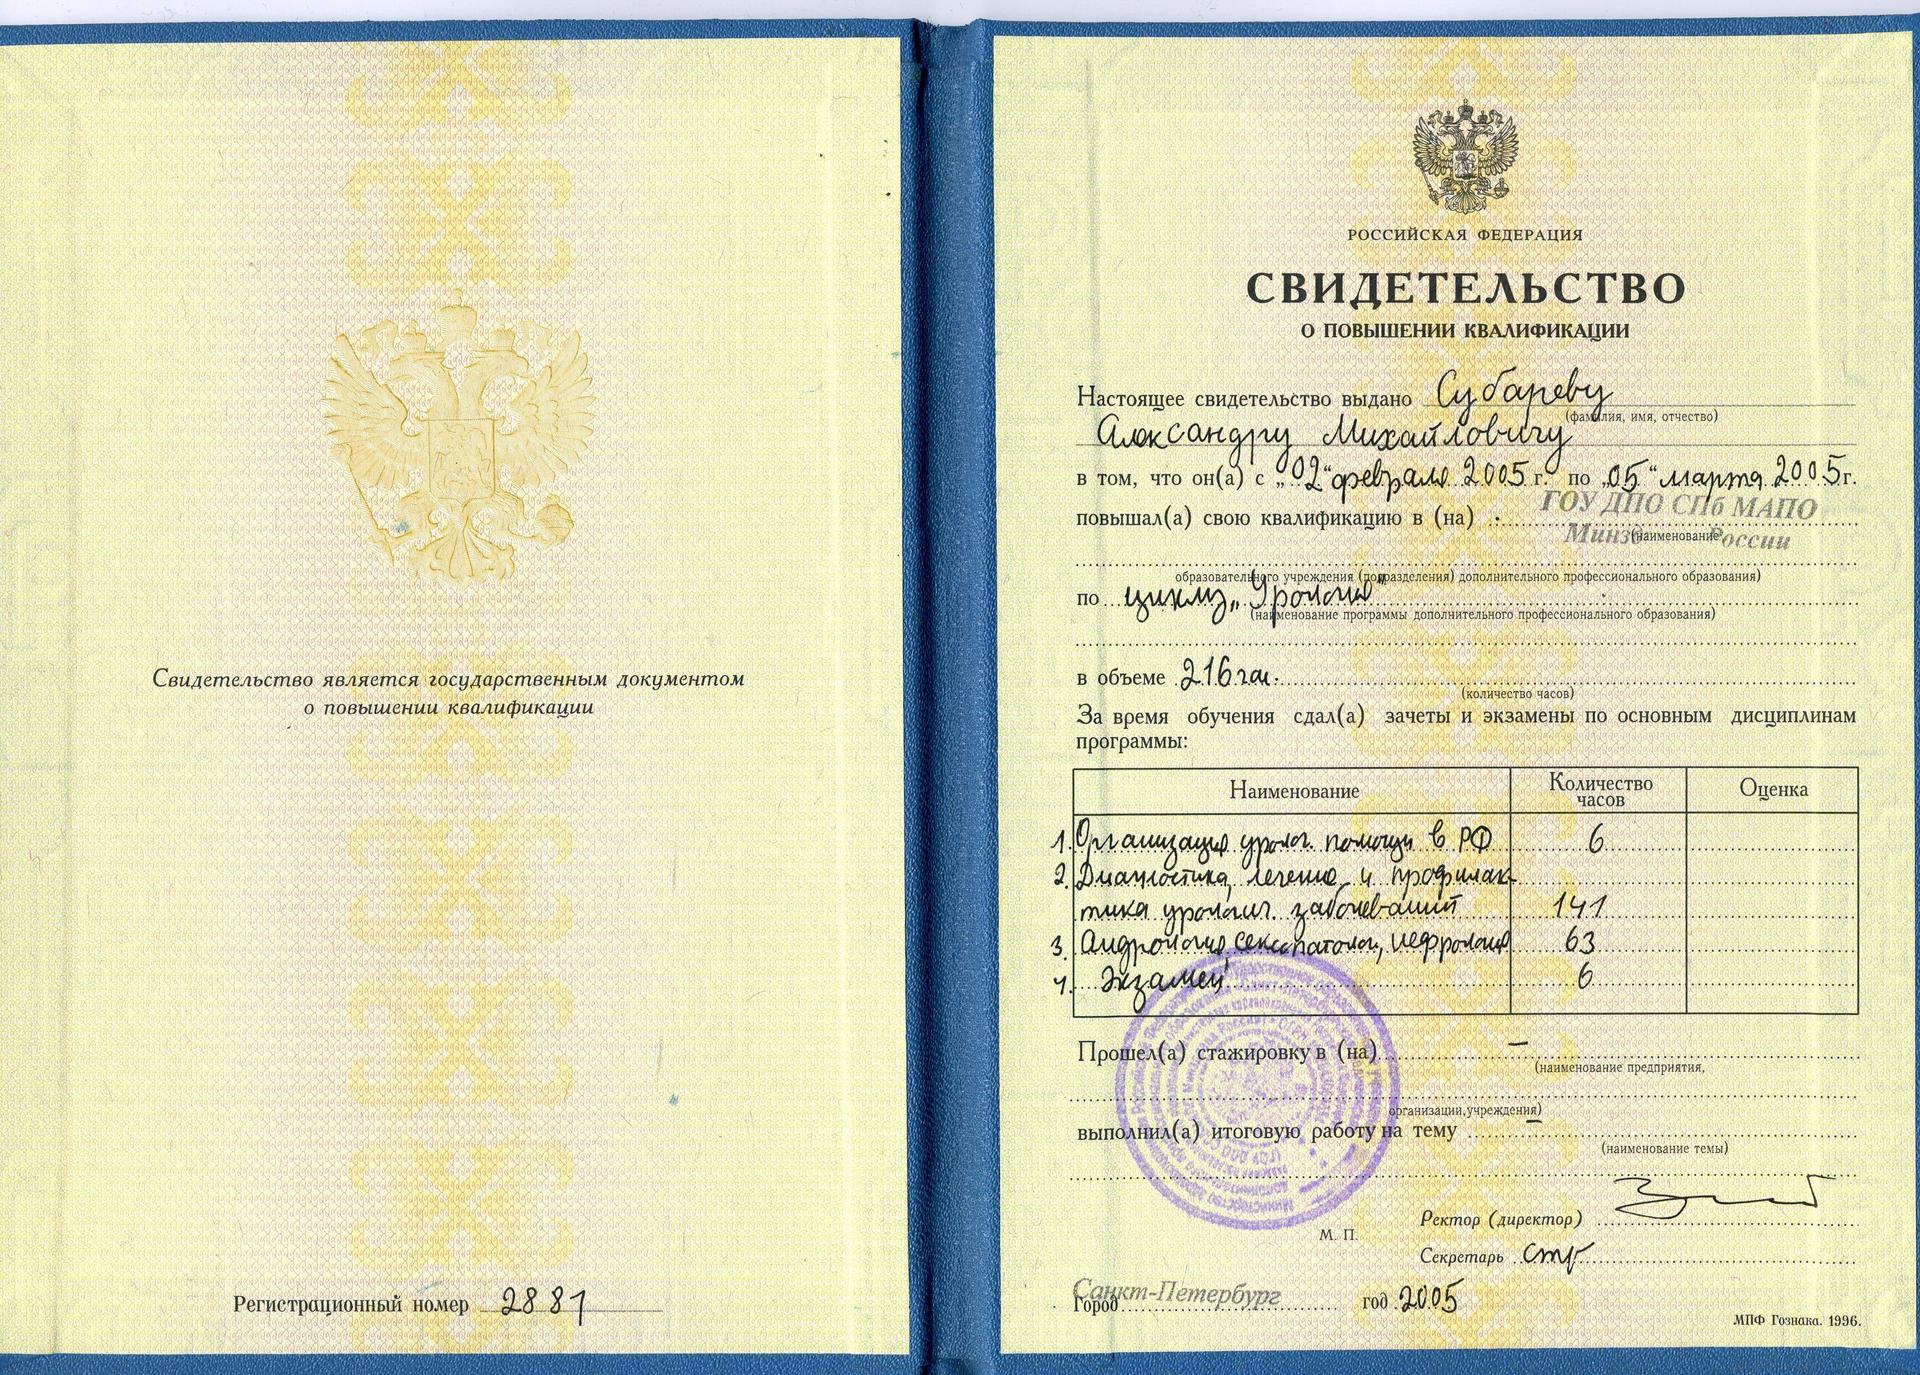 Свидетельство является государственным документом
о повышении квалификации
Регистрационный номер 2881
РОССИЙСКАЯ ФЕДЕРАЦИЯ
СВИДЕТЕЛЬСТВО
О ПОВЫШЕНИИ КВАЛИФИКАЦИИ
Настоящее свидетельство выдано Субареву
(фамилия, имя, отчество)
Александру Михайловичу
в том, что он(а) с „02“ февраля 2005 г. по „05“ марта 2005 г.
ГОУ ДПО СПб МАПО
повышал(а) свою квалификацию в (на)
Минз России
(наименование
образовательного учреждения (подразделения) дополнительного профессионального образования)
по циклу „Урология“
(наименование программы дополнительного профессионального образования)
в объеме 216 час.
(количество часов)
За время обучения сдал(а) зачеты и экзамены по основным дисциплинам
программы:
Наименование Количество часов Оценка
1. Организация уролог. помощи в РФ 6
2. Диагностика, лечение и профилак-
тика урологич. заболеваний 141
3. Андрология, сексопатолог, нефрология 63
4. Экзамен 6
Прошел(а) стажировку в (на) –
(наименование предприятия,
организации, учреждения)
выполнил(а) итоговую работу на тему –
(наименование темы)
Ректор (директор)
М. П.
Секретарь
Санкт-Петербург
Город год 2005
МПФ Гознака. 1996.